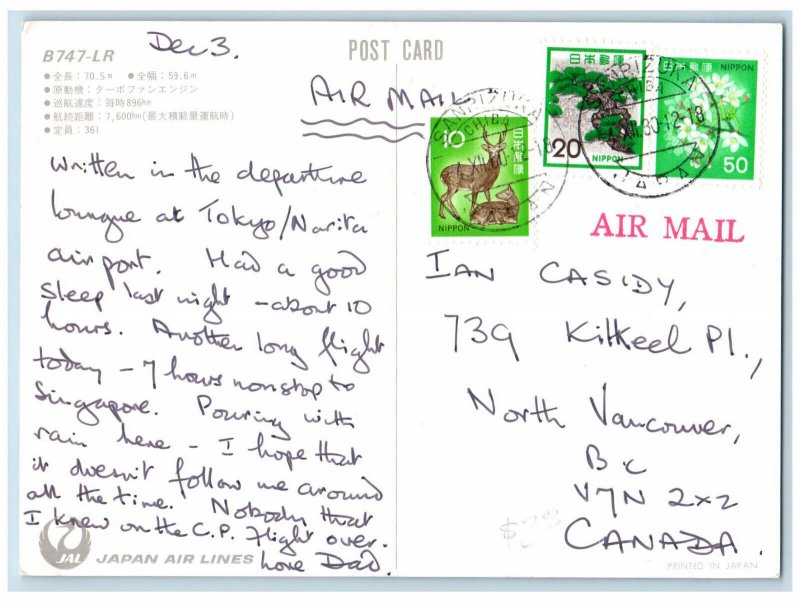 Dec 3.
POST CARD
B747-LR
●全長：70.5m ●全幅：59.6m
●原動機：ターボファンエンジン
●巡航速度：毎時896km
●航続距離：7,600km(最大積載量運航時)
●定員：361
AIR MAIL
Written in the departure
lounge at Tokyo/Narita
airport. Had a good
sleep last night - about 10
hours. Another long flight
today - 7 hours nonstop to
Singapore. Pouring with
rain here - I hope that
it doesn't follow me around
all the time. Nobody that
I knew on the C.P. flight over.
Love Dad.
JAL JAPAN AIR LINES
10
日本郵便
NIPPON
日本郵便
20
NIPPON
日本郵便
NIPPON
50
SANRIZUKA
CHIBA
XII.80.12-18
JAPAN
AIR MAIL
IAN CASIDY,
739 Kilkeel Pl.,
North Vancouver,
BC
V7N 2X2
CANADA.
$2.00
PRINTED IN JAPAN